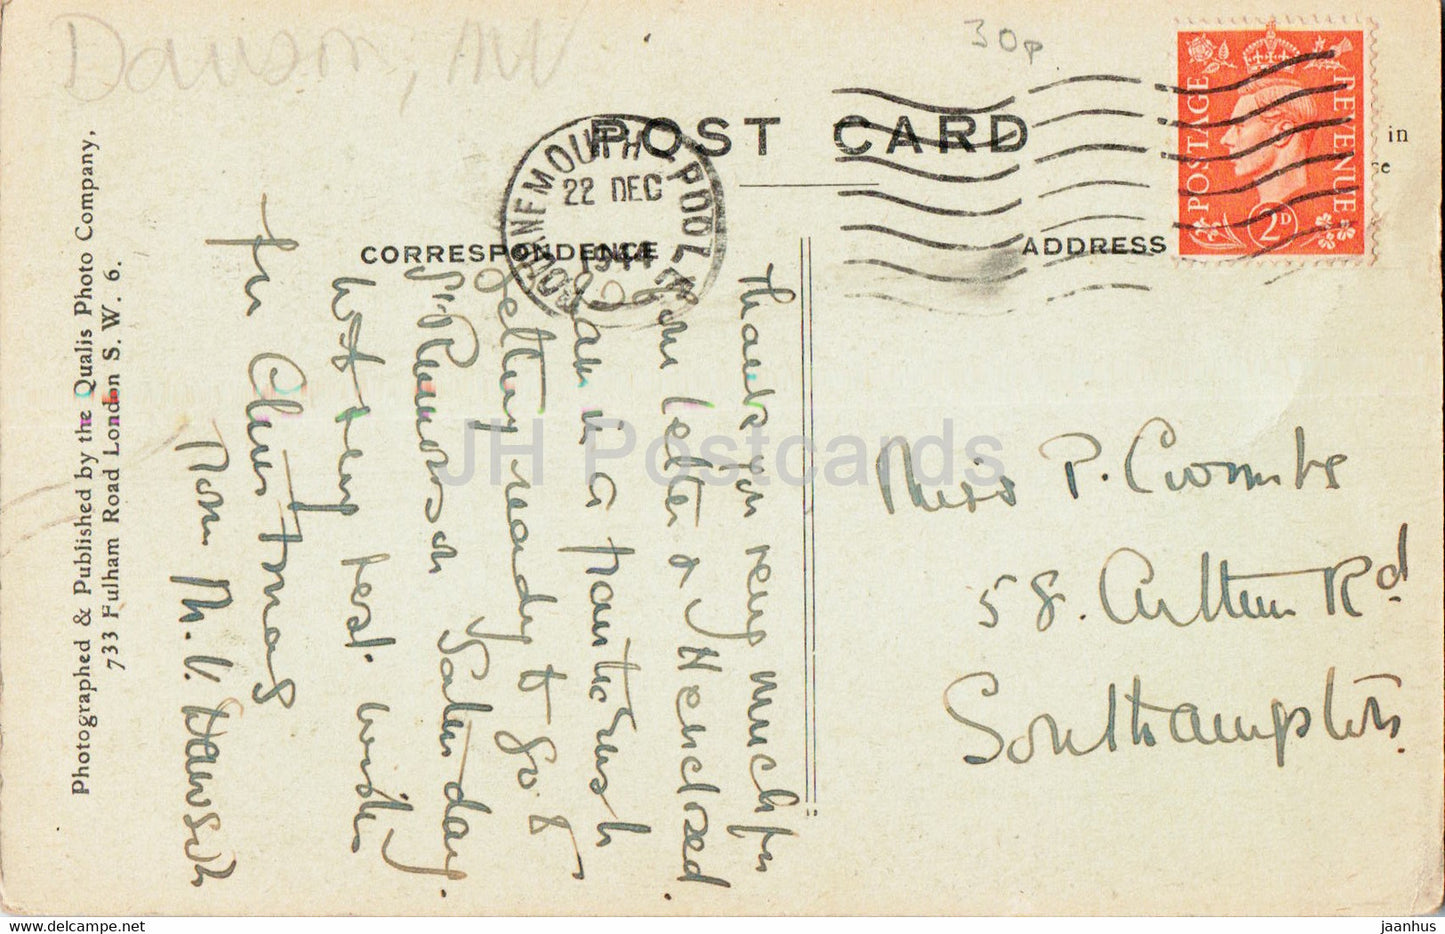 Dawson, MV
30p
POST CARD
in
ce
POSTAGE
REVENUE
2D
BOURNEMOUTH - POOLE
22 DEC
1944
CORRESPONDENCE
ADDRESS
Thank you very much for
your letter & enclosed
I am in a frantic rush
getting ready to go to
St. Saturday.
With very best wishes
for Christmas
from M. V. Dawson
Miss P. Coombs
58. Arthur Rd
Southampton.
Photographed & Published by the Qualis Photo Company,
733 Fulham Road London S. W. 6.
JH Postcards
jaanhus